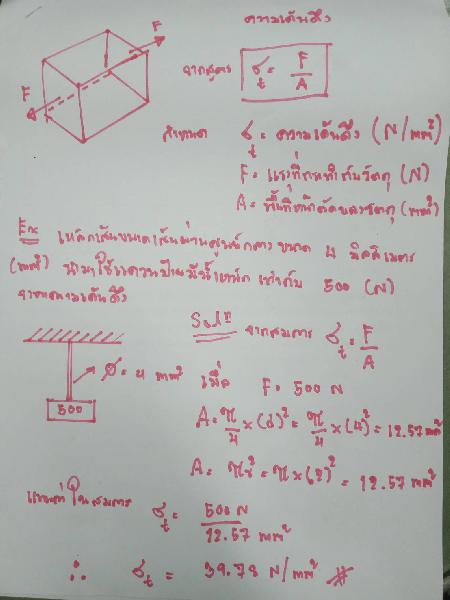 ความเค้นดึง
F
F
จากสูตร σt = F/A
กำหนด σt = ความเค้นดึง (N/mm²)
F = แรงที่กระทำกับวัตถุ (N)
A = พื้นที่หน้าตัดของวัตถุ (mm²)
Ex เหล็กเส้นขนาดเส้นผ่านศูนย์กลาง ขนาด 4 มิลลิเมตร
(mm²) นำมาใช้แขวนป้ายมีน้ำหนัก เท่ากับ 500 (N)
จงหาความเค้นดึง
Solⁿ จากสมการ σt = F/A
Ø = 4 mm² เมื่อ F = 500 N
500
A = π/4 × (d)² = π/4 × (4)² = 12.57 mm²
A = πr² = π × (2)² = 12.57 mm²
แทนค่าในสมการ σt = 500 N / 12.57 mm²
∴ σt = 39.78 N/mm² #